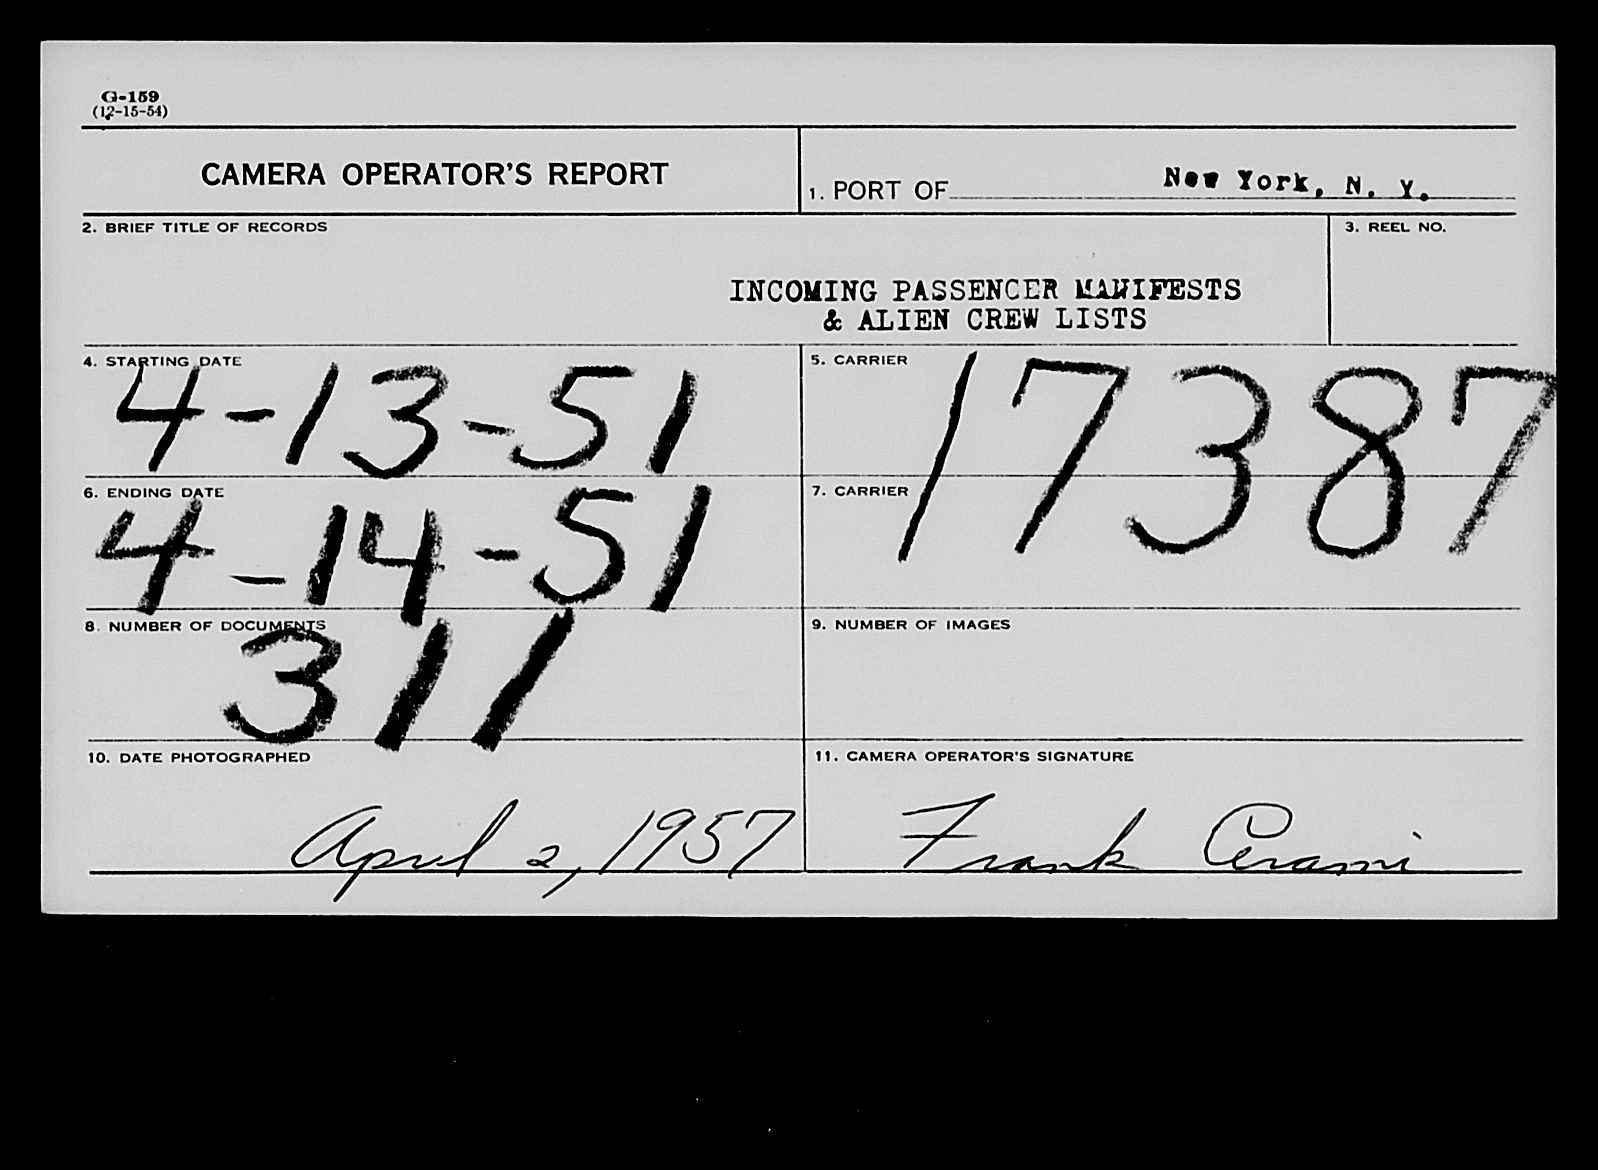 G-159
(12-15-54)
CAMERA OPERATOR'S REPORT
1. PORT OF New York, N. Y.
2. BRIEF TITLE OF RECORDS
3. REEL NO.
INCOMING PASSENGER MANIFESTS
& ALIEN CREW LISTS
4. STARTING DATE
4-13-51
5. CARRIER
17387
6. ENDING DATE
4-14-51
7. CARRIER
8. NUMBER OF DOCUMENTS
311
9. NUMBER OF IMAGES
10. DATE PHOTOGRAPHED
April 2, 1957
11. CAMERA OPERATOR'S SIGNATURE
Frank Cerami